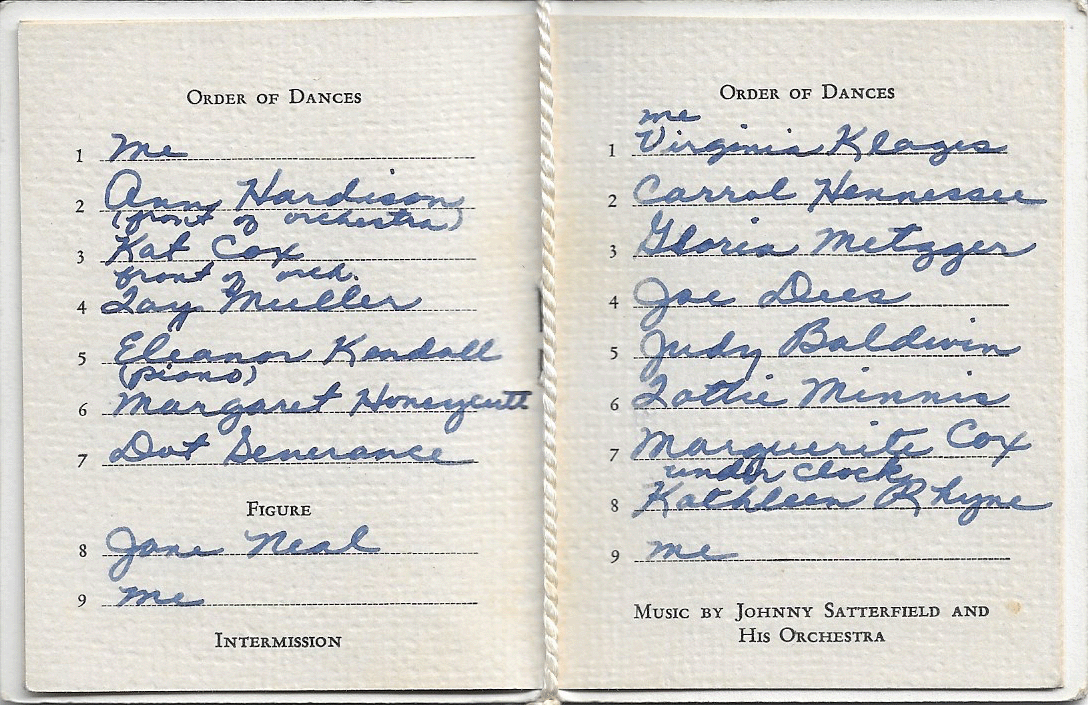 ORDER OF DANCES
1 Me
2 Ann Hardison
(front of orchestra)
3 Kat Cox
front of orch.
4 Muller
5 Eleanor Kendall
(piano)
6 Margaret Honeycutt
7 Dot Severance
FIGURE
8 Jane Neal
9 Me
INTERMISSION
ORDER OF DANCES
me
1 Virginia Klages
2 Carrol Hennessee
3 Gloria Metzger
4 Joe Dees
5 Judy Baldwin
6 Lottie Minnis
7 Marguerite Cox
under clock
8 Kathleen Rhyne
9 me
MUSIC BY JOHNNY SATTERFIELD AND
HIS ORCHESTRA